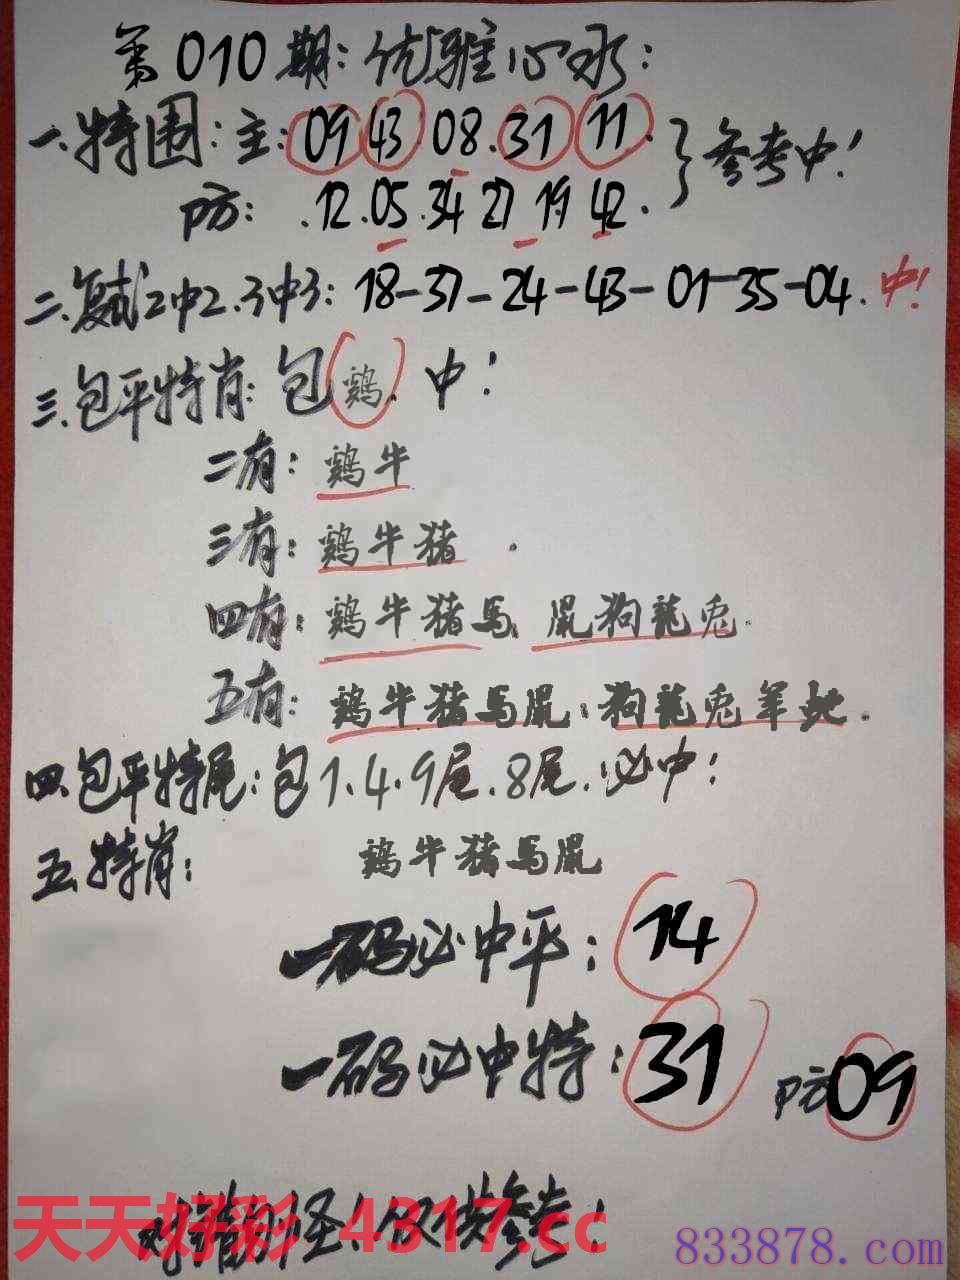 第010期:优雅心水:
一.特围:主:09 43 08.31 11.
防: .12.05.34 27 19 42. 参考中!
二.复式2中2.3中3: 18-37-24-43-01-35-04.中!
三.包平特肖:包鷄.中!
二有:鷄牛
三有:鷄牛猪.
四有:鷄牛猪馬 鼠狗龍兔.
五有:鷄牛猪馬鼠:狗龍兔羊蛇.
四.包平特尾:包1.4.9尾.8尾.必中!
五.特肖: 鷄牛猪馬鼠
一码必中平:14
一码必中特:31 防09
仅供参考!
天天好彩 4317.cc
833878.com